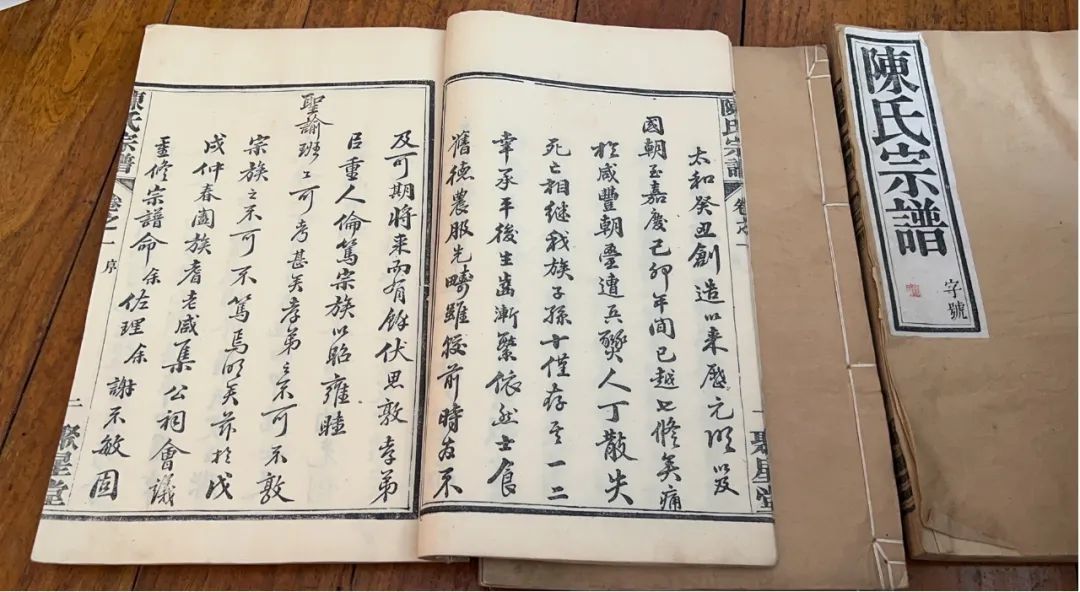 陳氏宗譜
字號
陳氏宗譜 卷之一 一 聚星堂
太和癸丑創造以來歷元明以及
國朝至嘉慶己卯年間已越七修矣痛
於咸豐朝疊遭兵燹人丁散失
死亡相繼我族子孫十僅存其一二
幸承平後生齒漸繁依然士食
舊德農服先疇雖較前時為不
及可期將來而有餘伏思敦孝弟
㠯重人倫篤宗族以昭雍睦
聖諭班々可考甚矣孝弟之不可不敦
宗族之不可不篤焉明矣茲於戊
戌仲春闔族耆老咸集公祠會議
重修宗譜命余佐理余謝不敏固
陳氏宗譜 卷之一 序 二 聚星堂